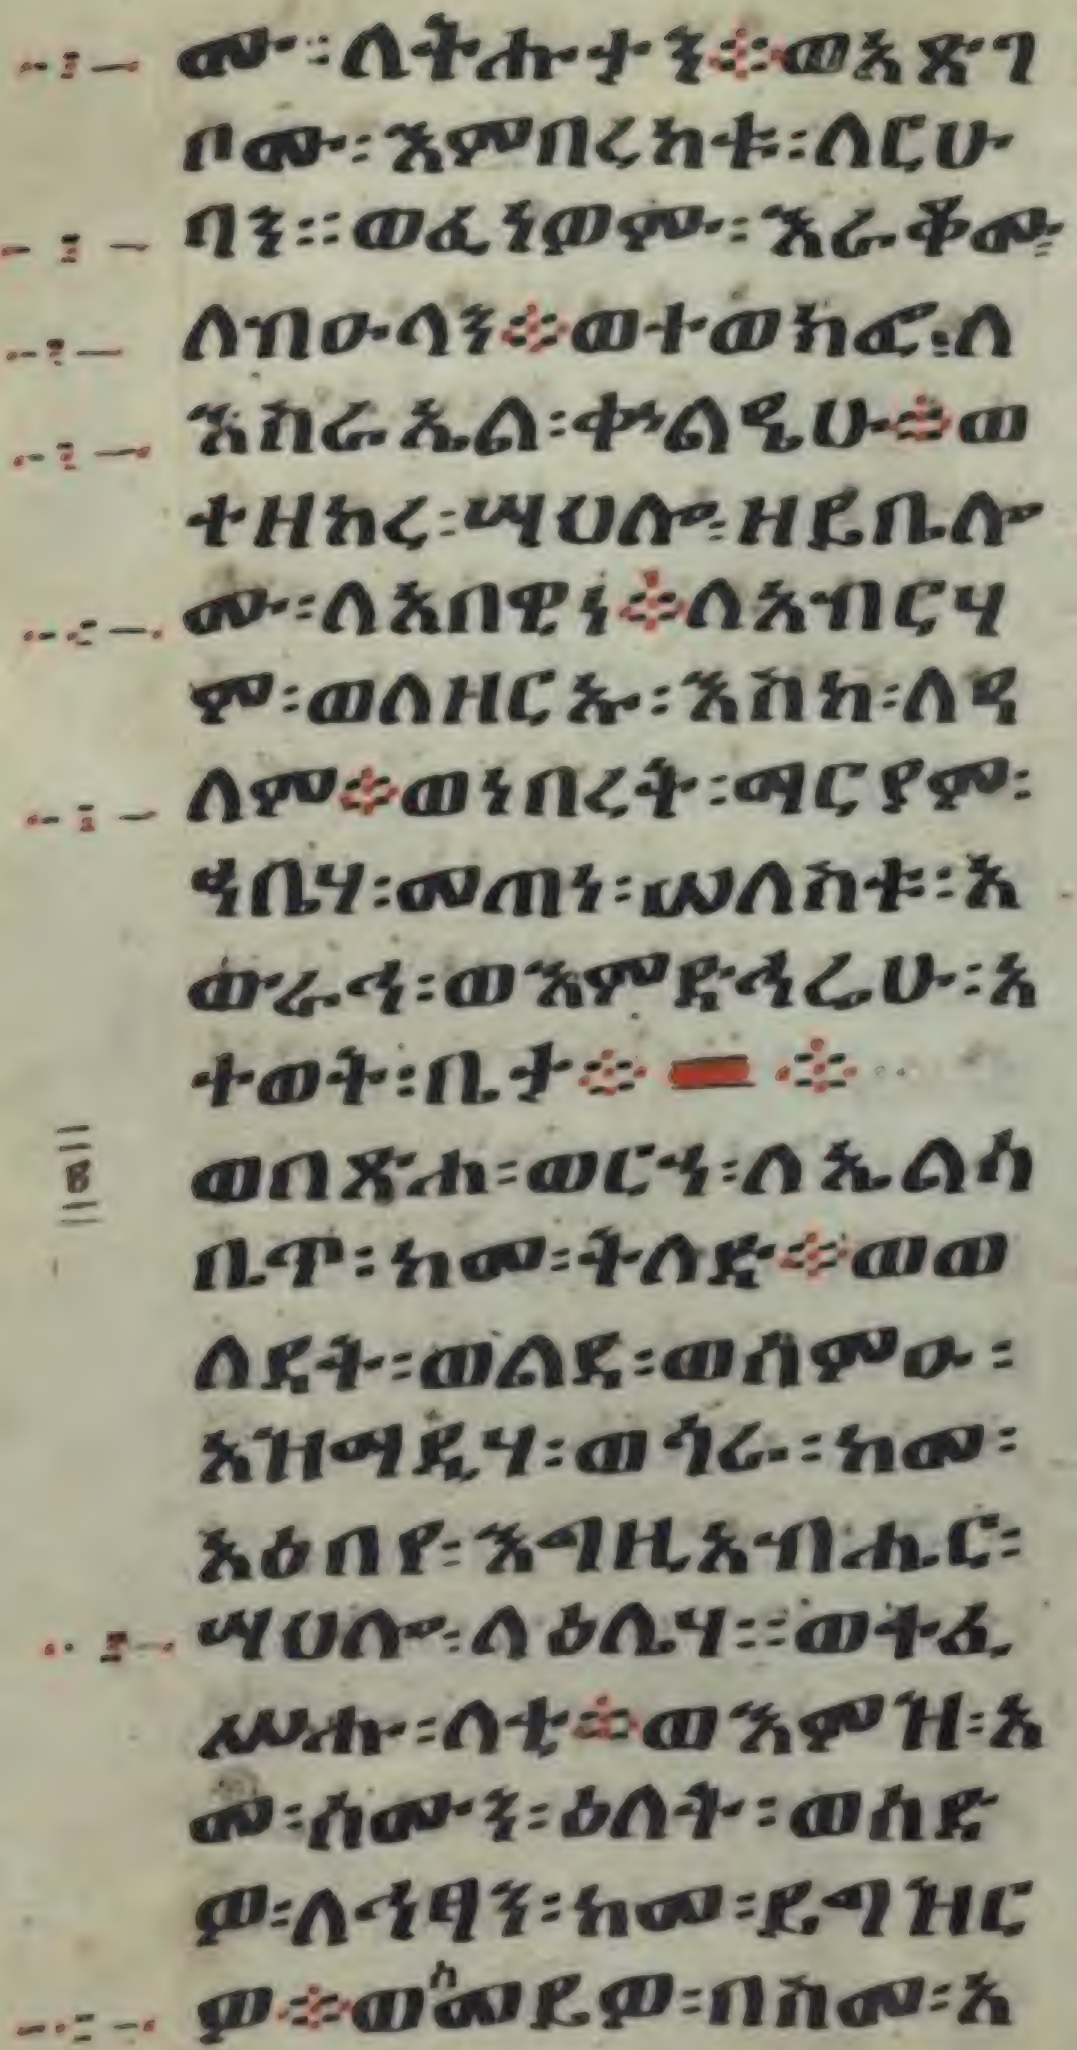 ሙ፡ለትሑታን፨ወአጽገ
ቦሙ፡እምበረከቱ፡ለርሁ
ባን።ወፈነወሙ፡እራቆሙ፡
ለብዑላን፨ወተወክፎ፡ለ
እስራኤል፡ቍልዔሁ፨ወ
ተዘከረ፡ሣህሎ፡ዘይቤሎ
ሙ፡ለአበዊነ፨ለአብርሃ
ም፡ወለዘርኡ፡እስከ፡ለዓ
ለም፨ወነበረት፡ማርያም፡
ኀቤሃ፡መጠነ፡ሠለስቱ፡አ
ውራኅ፡ወእምድኅሬሁ፡አ
ተወት፡ቤታ፨ ፨
ወበጽሐ፡ወርኀ፡ለኤልሳ
ቤጥ፡ከመ፡ትለድ፨ወወ
ለደት፡ወልደ፡ወሰምዑ፡
አዝማዲሃ፡ወጎራ፡ከመ፡
አዕበየ፡እግዚአብሔር፡
ሣህሎ፡ላዕሌሃ።ወተፈ
ሥሑ፡ላቲ፨ወእምዝ፡አ
መ፡ሰሙን፡ዕለት፡ወሰድ
ዎ፡ለኅፃን፡ከመ፡ይግዝር
ዎ፨ወሰመይዎ፡በስመ፡አ